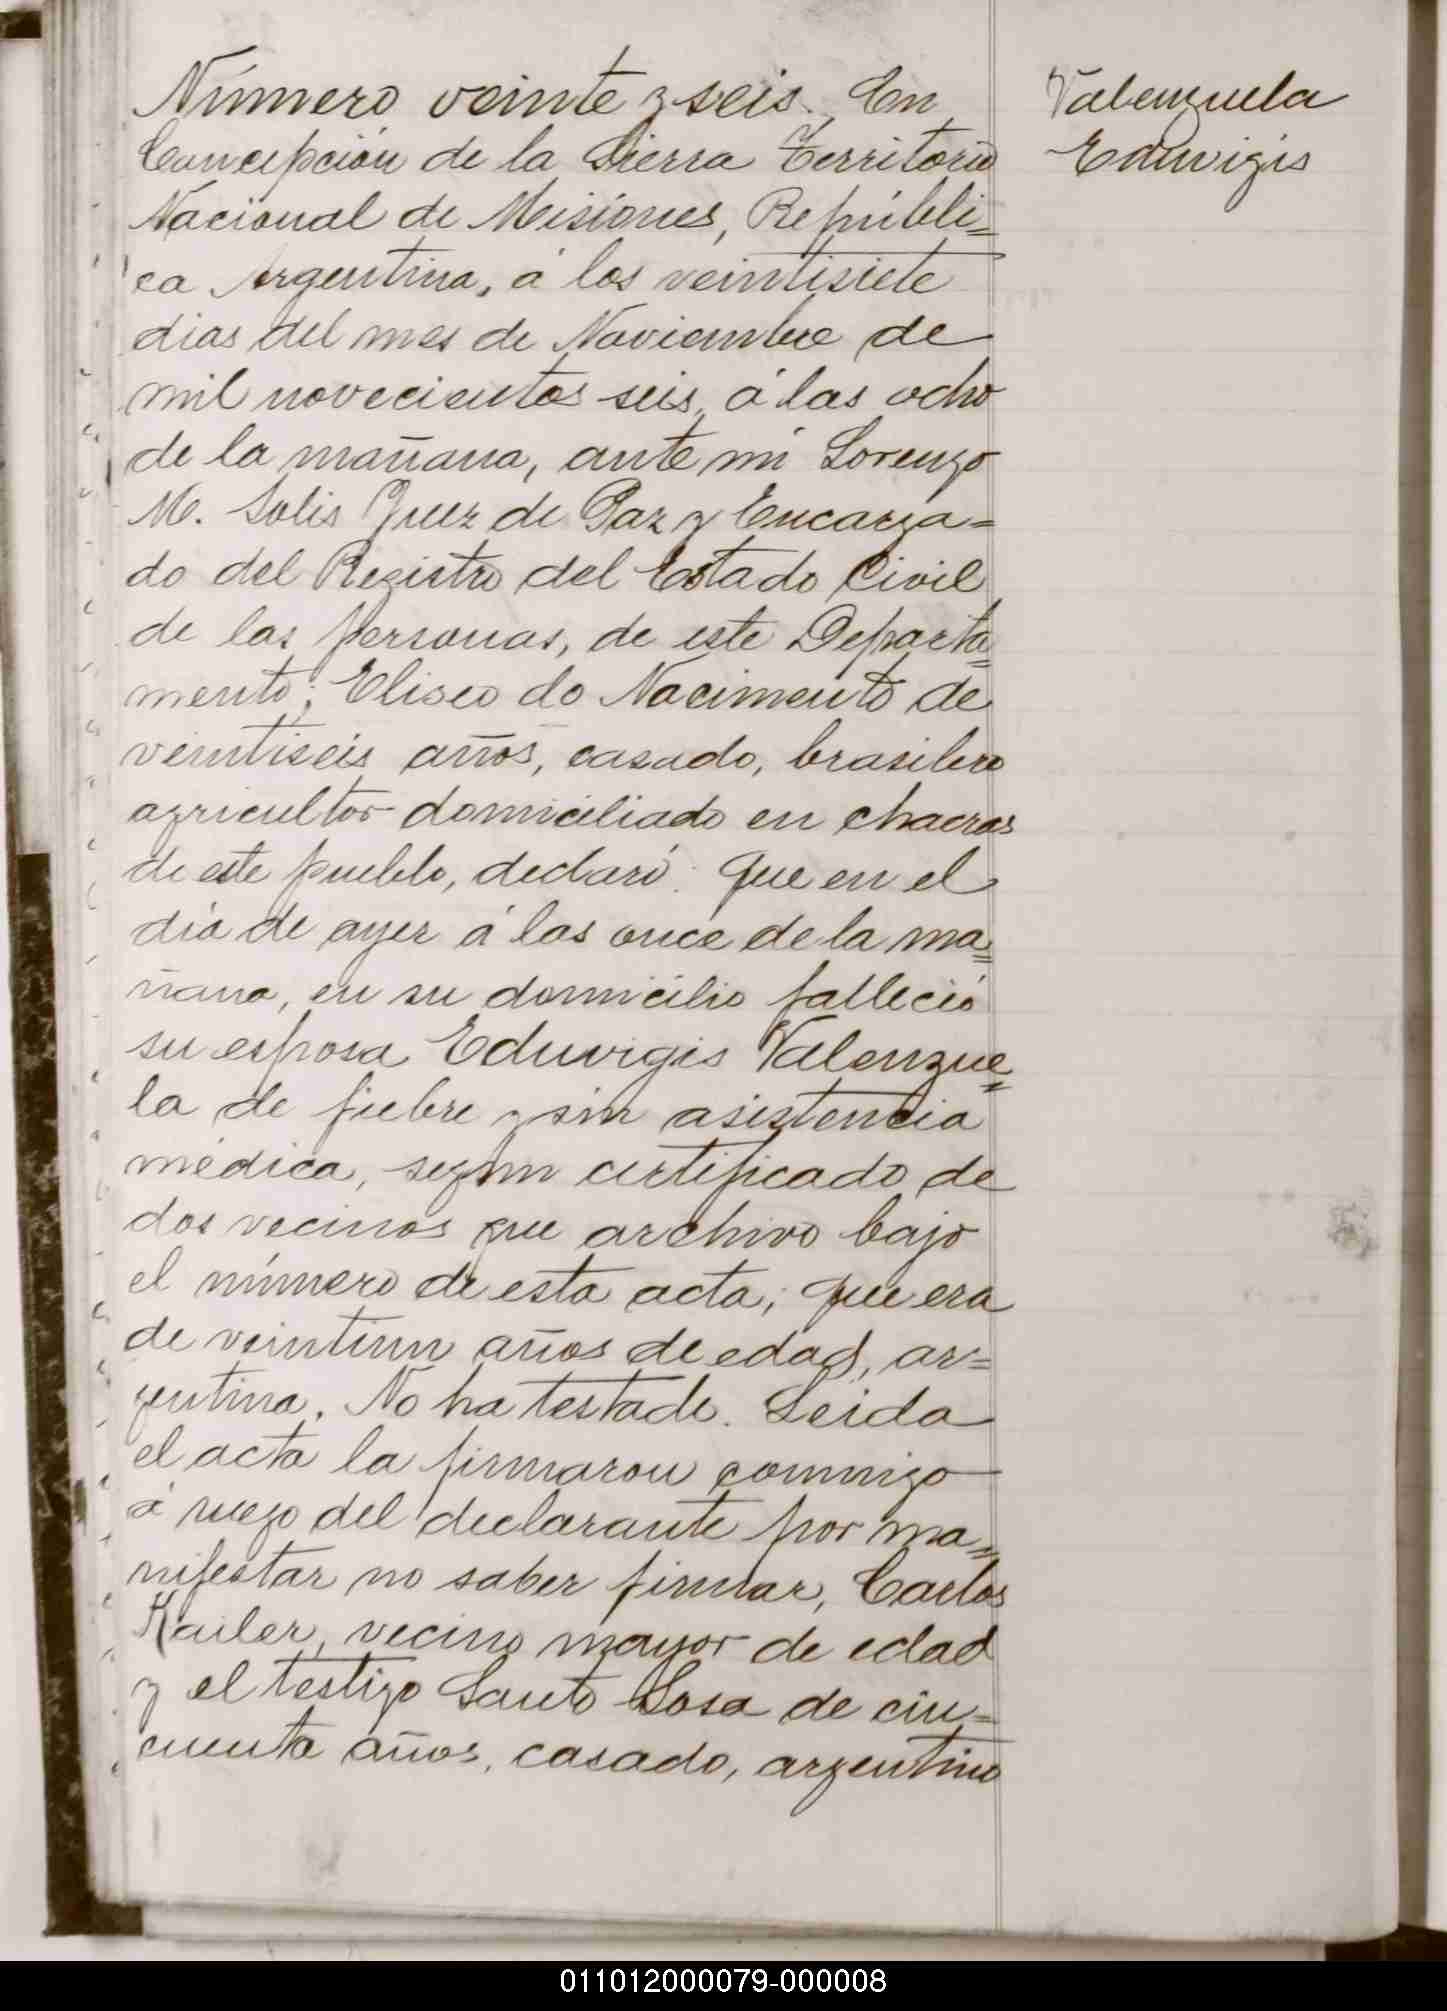 Número veinte y seis. En
Concepción de la Sierra Territorio
Nacional de Misiones, Repúbli=
ca Argentina, á los veintisiete
dias del mes de Noviembre de
mil novecientos seis, á las ocho
de la mañana, ante mi Lorenzo
M. Solis Juez de Paz y Encarga=
do del Registro del Estado Civil
de las personas, de este Departa=
mento; Eliseo do Nacimento de
veintiseis años, casado, brasilero
agricultor domiciliado en chacras
de este pueblo, declaró: Que en el
día de ayer á las once de la ma=
ñana, en su domicilio falleció
su esposa Eduvigis Valenzue=
la de fiebre y sin asistencia
médica, segun certificado de
dos vecinos que archivo bajo
el número de esta acta; que era
de veintiun años de edad, ar=
gentina. No ha testado. Leida
el acta la firmaron conmigo
á ruego del declarante por ma=
nifestar no saber firmar, Carlos
Kailer, vecino mayor de edad
y el testigo Santo Sosa de cin=
cuenta años, casado, argentino
Valenzuela
Eduvigis
011012000079-000008